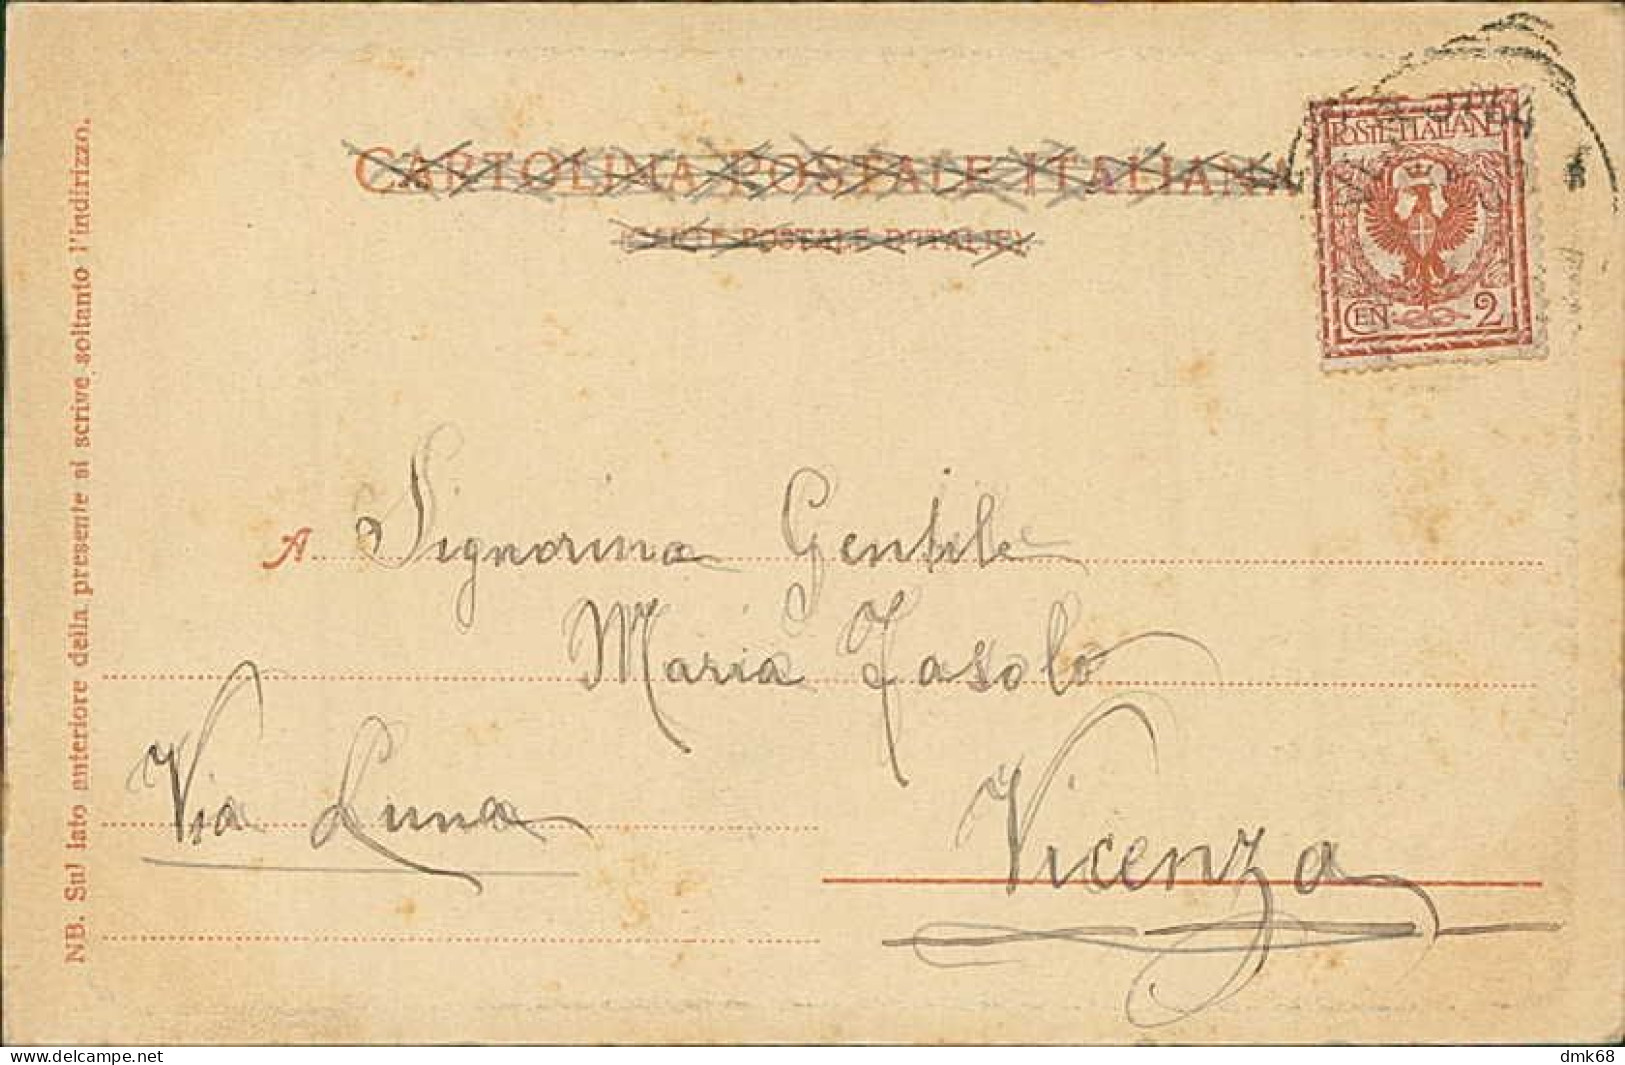 CARTOLINA POSTALE ITALIANA
(CARTE POSTALE D'ITALIE)
POSTE ITALIANE
CEN 2
NB. Sul lato anteriore della presente si scrive soltanto l'indirizzo.
A Signorina Gentile
Maria Fasolo
Via Luna
Vicenza
delcampe.net
dmk68